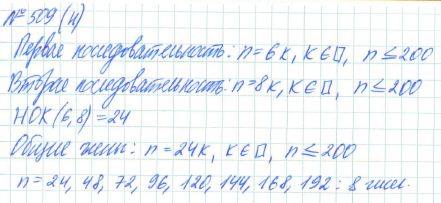 № 509 (н)
Первая последовательность: n=6к, к∈□, n≤200
Вторая последовательность: n=8к, к∈□, n≤200
НОК(6,8)=24
Общие члены: n=24к, к∈□, n≤200
n=24, 48, 72, 96, 120, 144, 168, 192: 8 чисел.